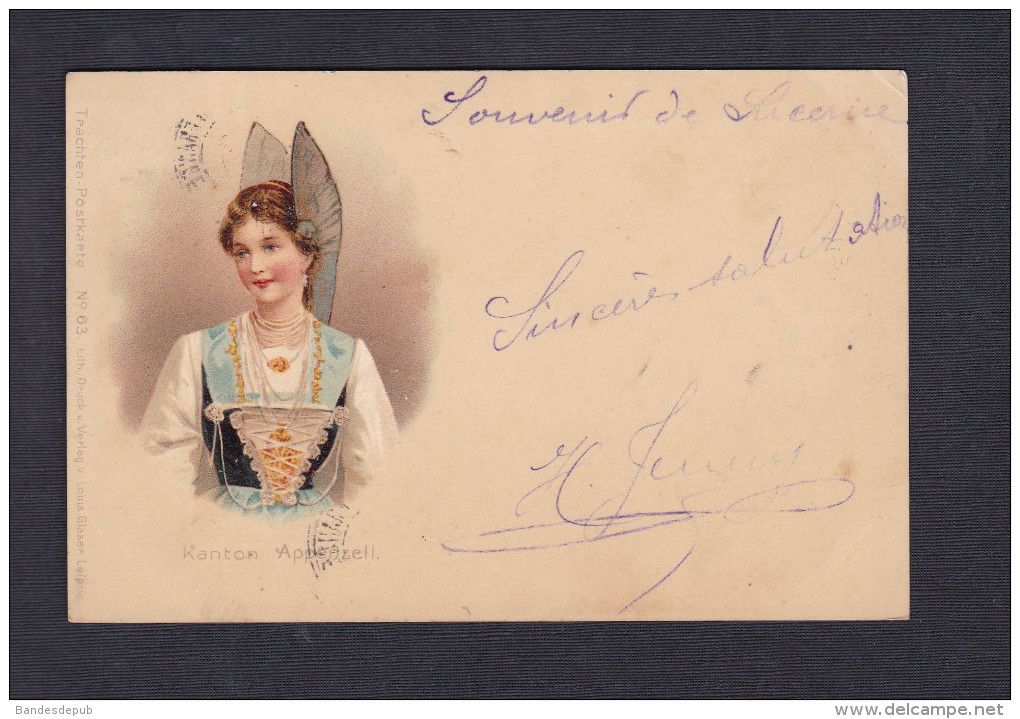 Souvenir de Lucerne
Sincères salutations
H. Jenny
Trachten-Postkarte No 63. Lith. Druck u. Verlag v. Louis Glaser, Leipzig
Kanton Appenzell.
Bandesdepub
www.delcampe.net